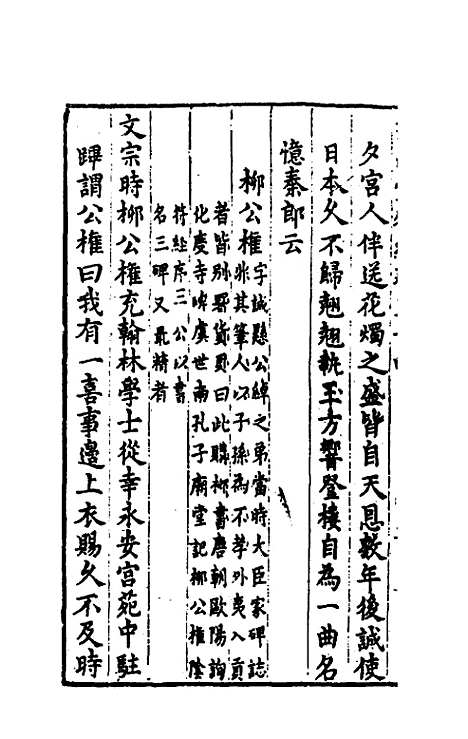 夕宮人伴送花燭之盛皆自天恩數年後誠使
日本久不歸翹翹執玉方響登樓自為一曲名
憶秦郎云
柳公權
字誠懸公綽之弟當時大臣家碑誌
非其筆人以子孫為不孝外夷入貢
者皆別署貨貝曰此購柳書唐朝歐陽詢
化度寺碑虞世南孔子廟堂記柳公權陰
符經序三公以書
名三碑又最精者
文宗時柳公權充翰林學士從幸永安宮苑中駐
蹕謂公權曰我有一喜事邊上衣賜久不及時